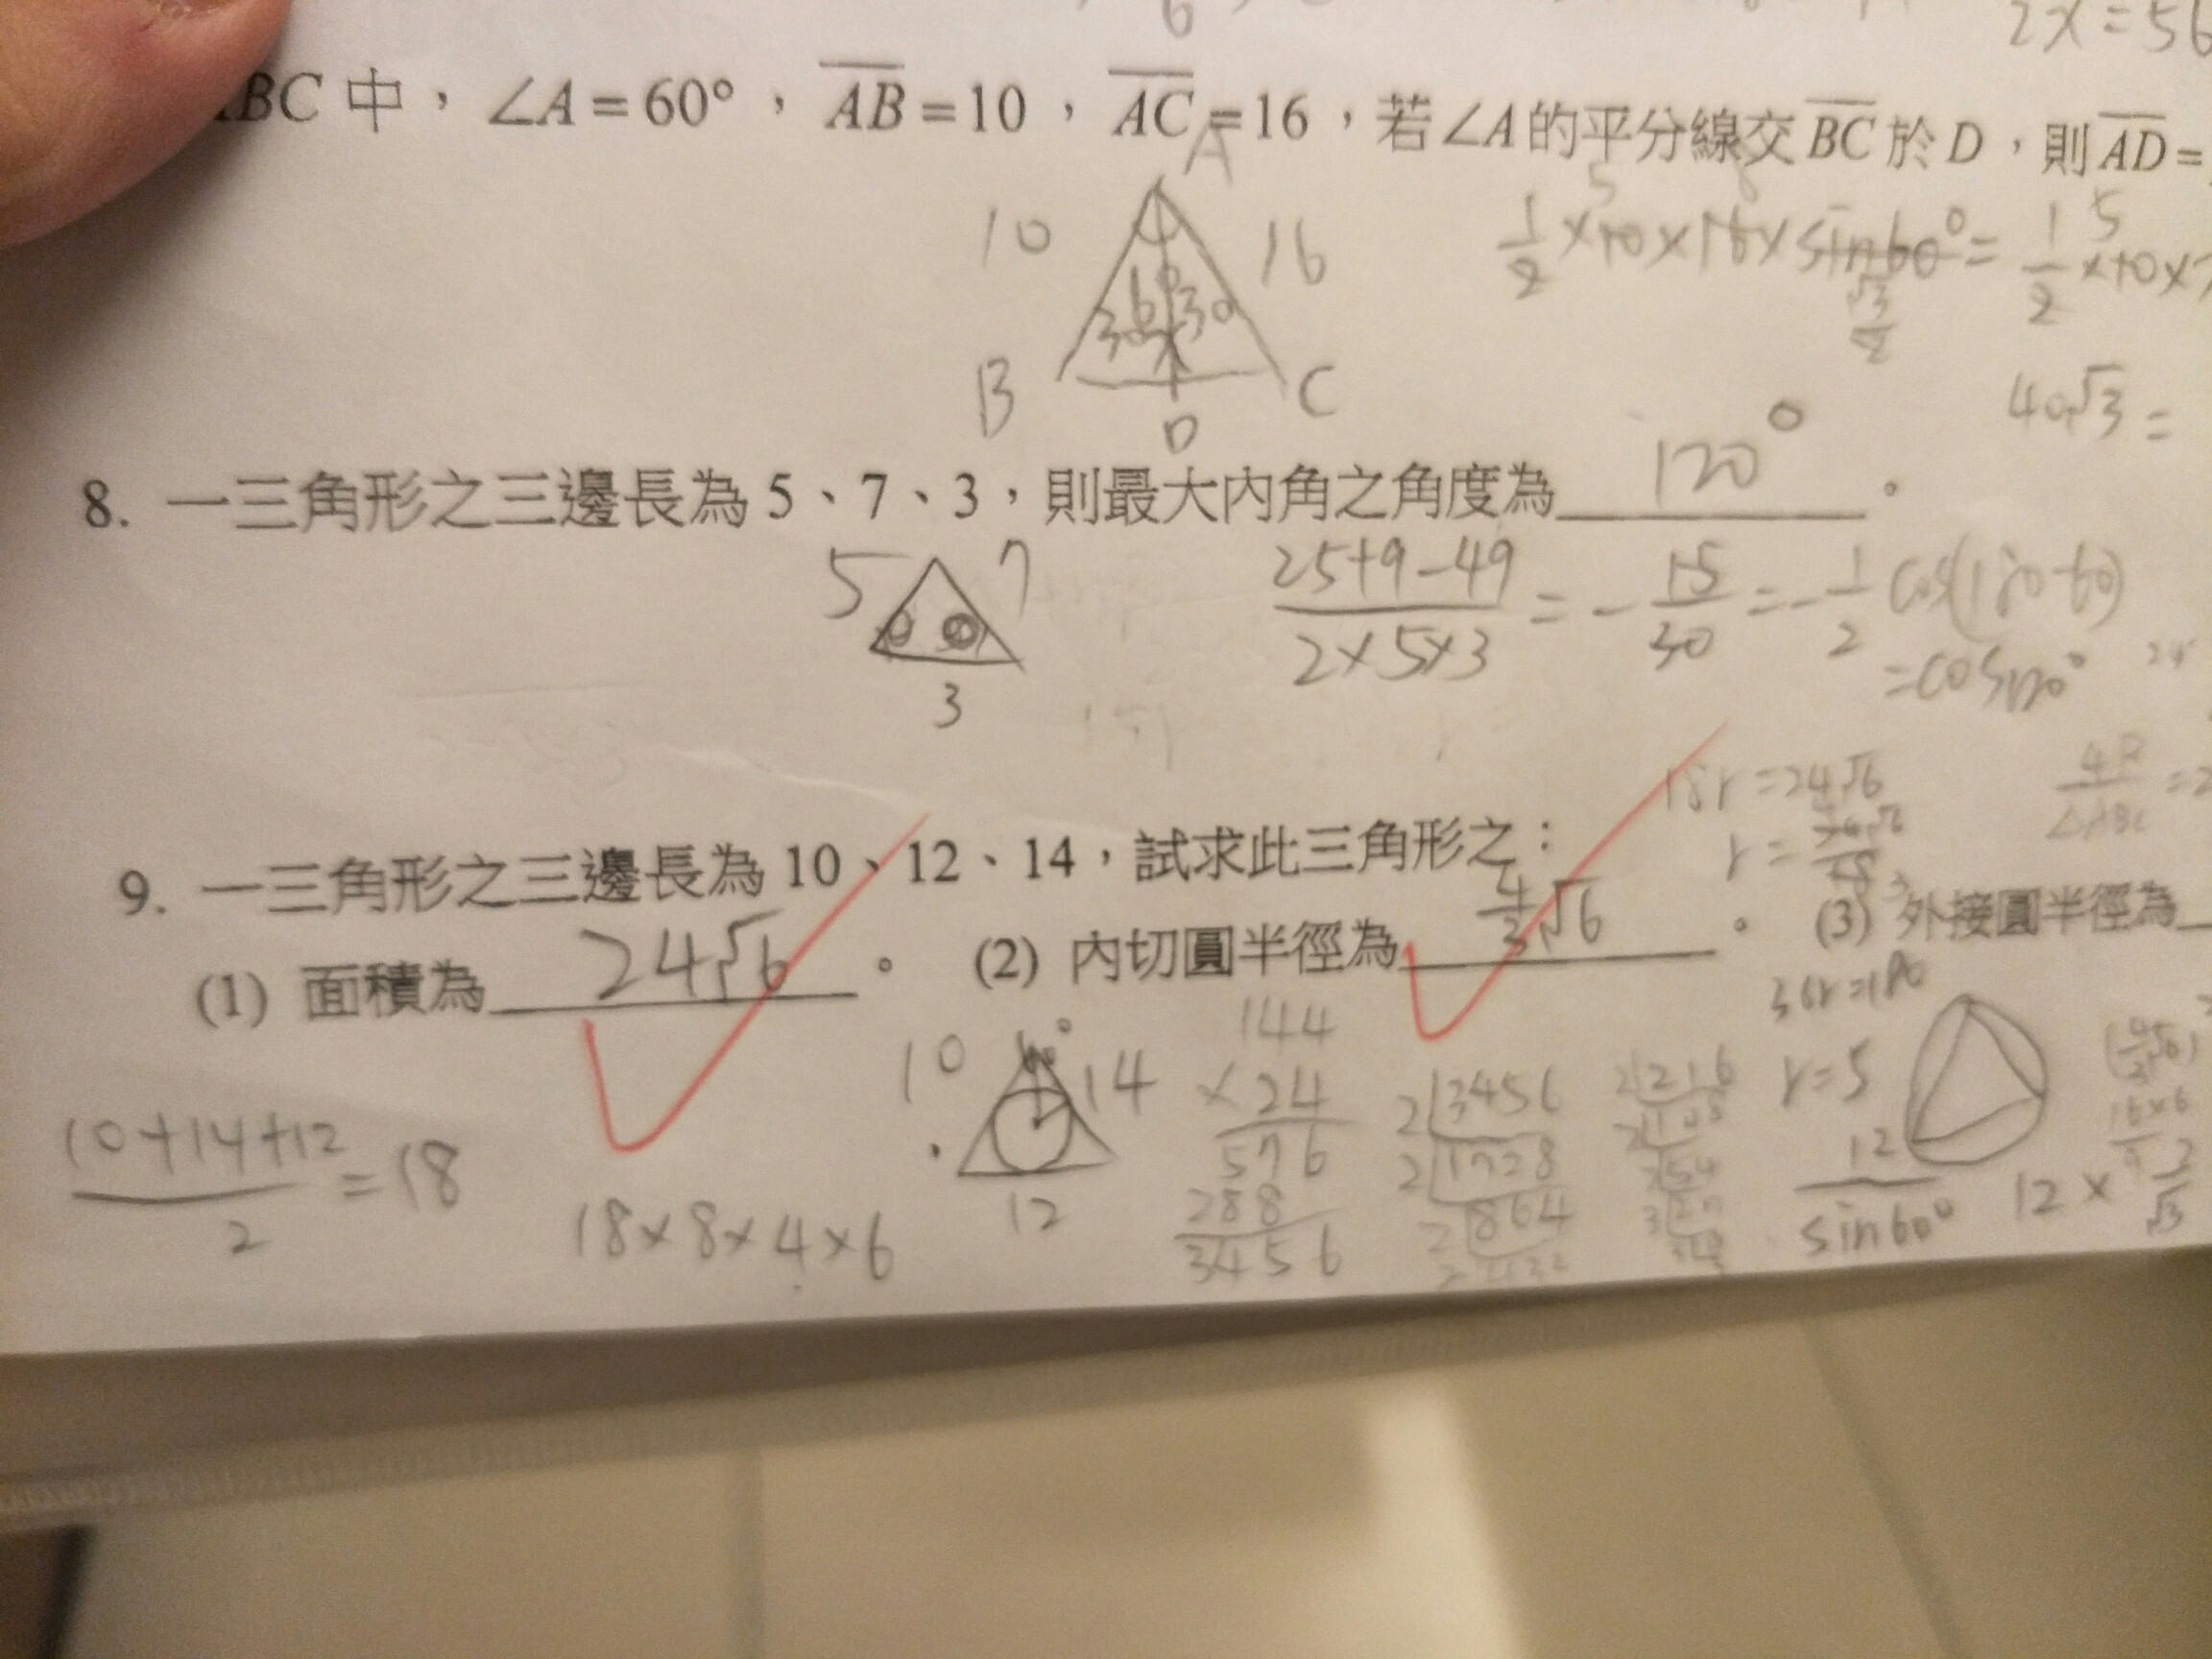 2x=56
BC 中，∠A=60°，AB=10，AC=16，若∠A的平分線交BC於D，則AD=
A
10 16
60° 30
B D C
1/2×10×16×sin60°=1/2×10×
5
√3/2
40√3=
8. 一三角形之三邊長為 5、7、3，則最大內角之角度為 120° 。
5 7
3
25+9-49/2×5×3=-15/30=-1/2 cos(180-60)
=cos120°
18r=24√6
r=
9. 一三角形之三邊長為 10、12、14，試求此三角形之：
(1) 面積為 24√6 。 (2) 內切圓半徑為 4/3√6 。 (3) 外接圓半徑為
36r=180
r=5
10 14
12
10+14+12/2=18
18×8×4×6
144
×24
576
288
3456
2 3456
2 1728
2 864
2 216
12/sin60° 12×2/√3